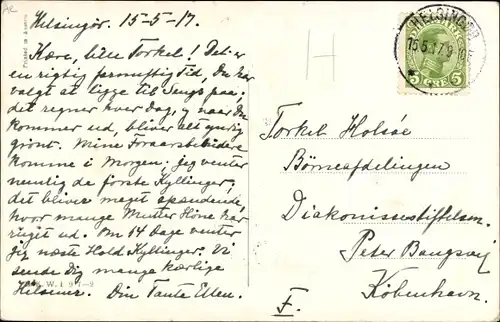 Helsingör. 15-5-17.
Kære, lille Torkel! Det er
en rigtig fornuftig Tid, Du har
valgt at ligge til Sengs paa;
det regner hver Dag, og naar Du
kommer ud, bliver alt yndig
grönt. Mine Foraarsbebudere
komme i Morgen; jeg venter
nemlig de förste Kyllinger,
det bliver meget spændende,
hvor mange Mutter Höne har
ruget ud. Om 14 Dage venter
jeg næste Hold Kyllinger. Vi
sende Dig mange kærlige
Hilsener. Din Tante Ellen.
W. 1 9 7-9
Printed in
H
HELSINGØR
15.5.17.9
5 ØRE 5
Torkel Holsöe
Börneafdelingen
Diakonissestiftelsen.
Peter Bangsvej
København.
F.